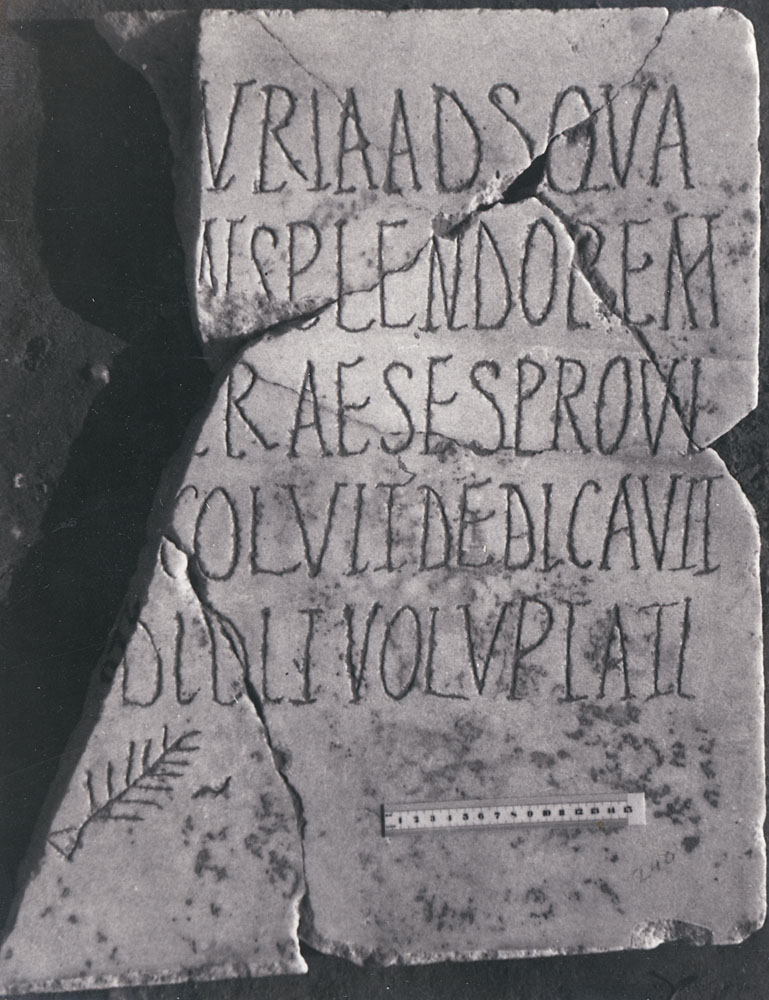 VRIAADSQVA
SPLENDOREM
RAESESPROVI
COLVIT DEDICAVIT
VOLVPTATI
1 2 3 4 5 6 7 8 9 10 11 12 13 14 15